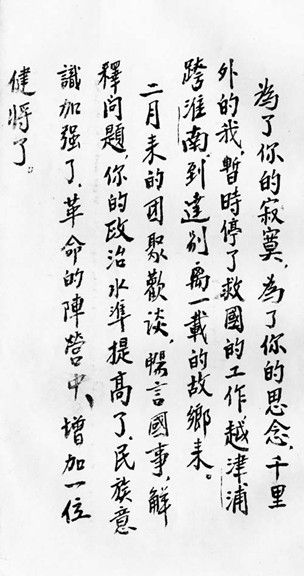 為了你的寂寞,為了你的思念,千里
外的我,暫時停了救國的工作越津浦
跨淮南到達别离一載的故鄉来。
二月来的团聚歡谈,暢言國事,解
釋问題,你的政治水準提高了.民族意
識加强了.革命的陣營中、增加一位
健將了。